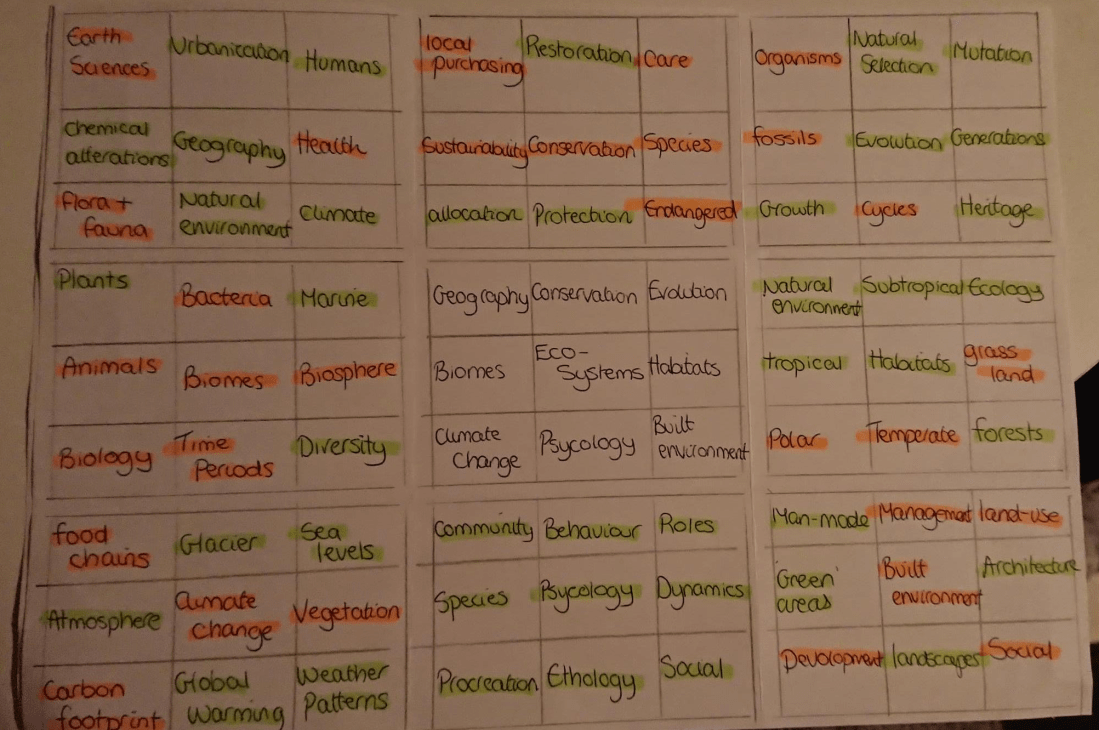 Earth Sciences Urbanication Humans
Chemical alterations Geography Health
flora + fauna Natural environment Climate
local purchasing Restoration Care
Sustainability Conservation Species
allocation Protection Endangered
Organisms Natural Selection Mutation
fossils Evolution Generations
Growth Cycles Heritage
Plants Bacteria Marine
Animals Biomes Biosphere
Biology Time Periods Diversity
Geography Conservation Evolution
Biomes Eco-Systems Habitats
Climate Change Psycology Built environment
Natural environment Subtropical Ecology
tropical Habitats grass land
Polar Temperate forests
food chains Glacier Sea levels
Atmosphere Climate change Vegetation
Carbon footprint Global Warming Weather Patterns
Community Behaviour Roles
Species Psycology Dynamics
Procreation Ethology Social
Man-made Management land-use
'Green' areas Built environment Architecture
Devolopment landscapes Social